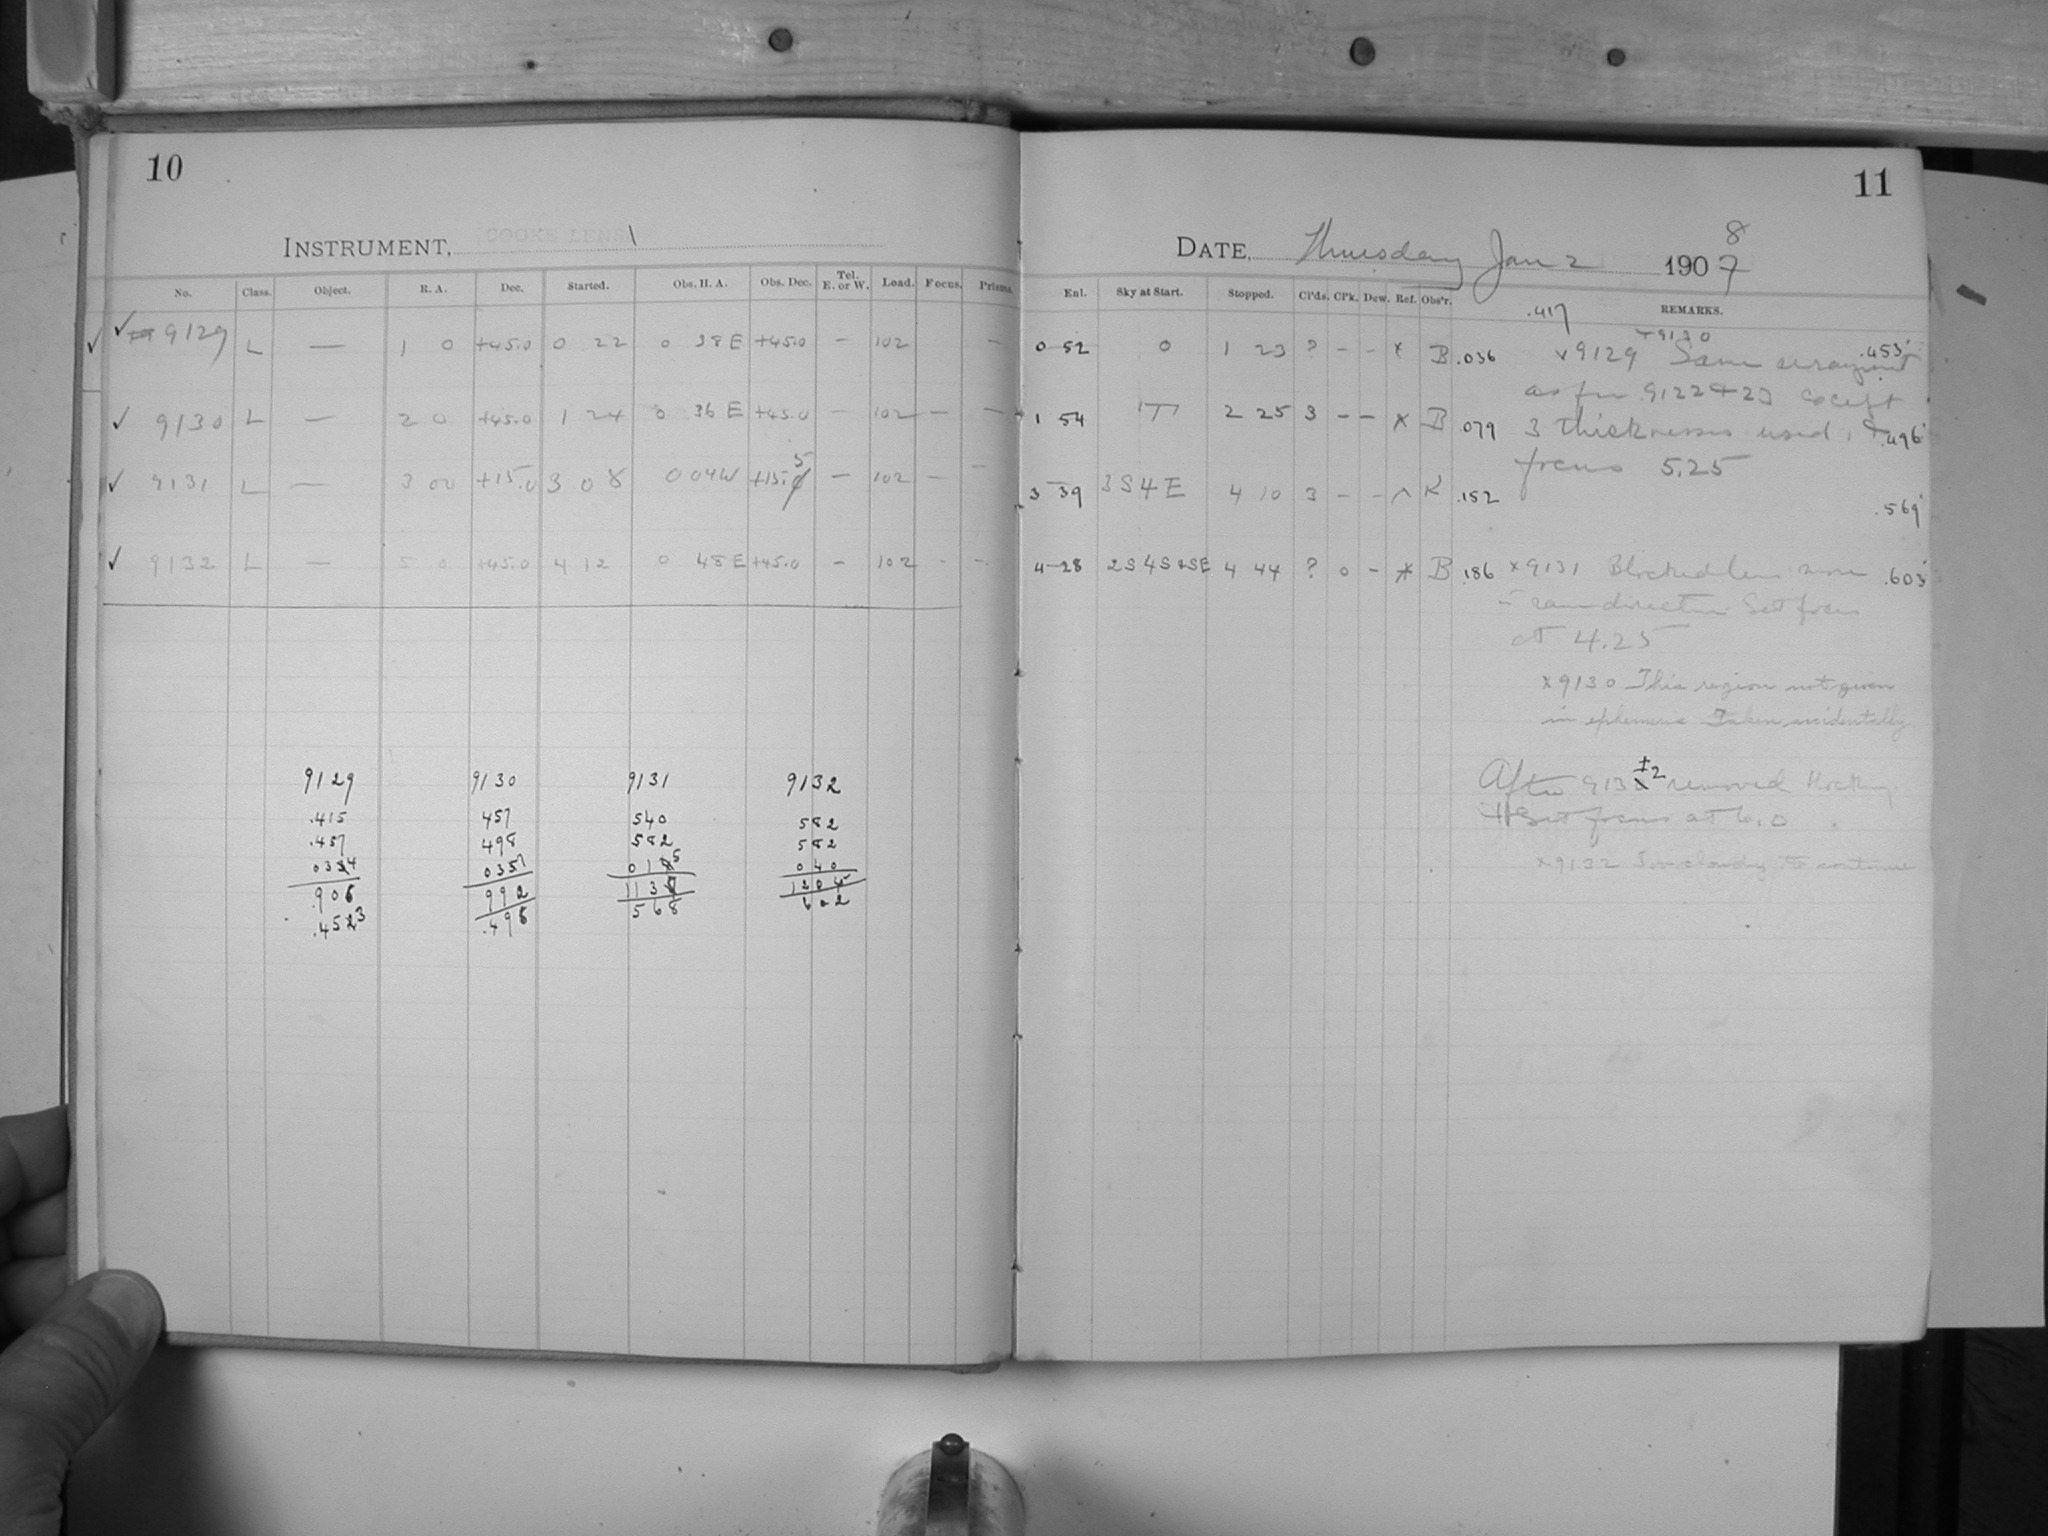 10
INSTRUMENT, COOKE LENS
No. Class. Object. R. A. Dec. Started. Obs. H. A. Obs. Dec. Tel. E. or W. Load. Focus. Prisms.
✓ ✓ 9129 L — 1 0 +45.0 0 22 0 38 E +45.0 — 102 —
✓ 9130 L — 2 0 +45.0 1 24 0 36 E +45.0 — 102 — —
✓ 9131 L — 3 00 +15.0 3 08 0 04 W +15.5 — 102 — —
✓ 9132 L — 5 0 +45.0 4 12 0 48 E +45.0 — 102 - -
9129 9130 9131 9132
.415 457 540 582
.457 498 582 582
034 037 015 040
906 992 1137 1204
.453 .498 568 602
11
DATE, Thursday Jan 2 1908
Enl. Sky at Start. Stopped. Cl'ds. Cl'k. Dew. Ref. Obs'r. REMARKS.
.417
0 52 0 1 23 ? - - x B .036 x9129 +9130 Same arrangement .453
as for 9122+23 except
1 54 2 25 3 - - x B .079 3 thicknesses used, + .496
focus 5.25
3 39 3S4E 4 10 3 - - K .152 .569
4 28 2S4S+SE 4 44 ? 0 - * B .186 x9131 Blocked lens more .603
in same direction Set focus
at 4.25
x9130 This region not given
in ephemeris Taken accidentally
After 9132 removed blocking
+ Set focus at 6.0
x9132 Too cloudy to continue